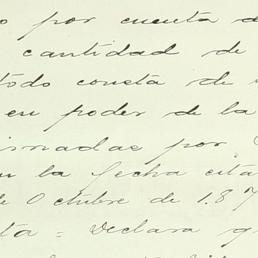 o por cuenta d
cantidad de
todo consta de
en poder de la
ismadas por
en la fecha cita
de Octubre de 187
ta = Declara q